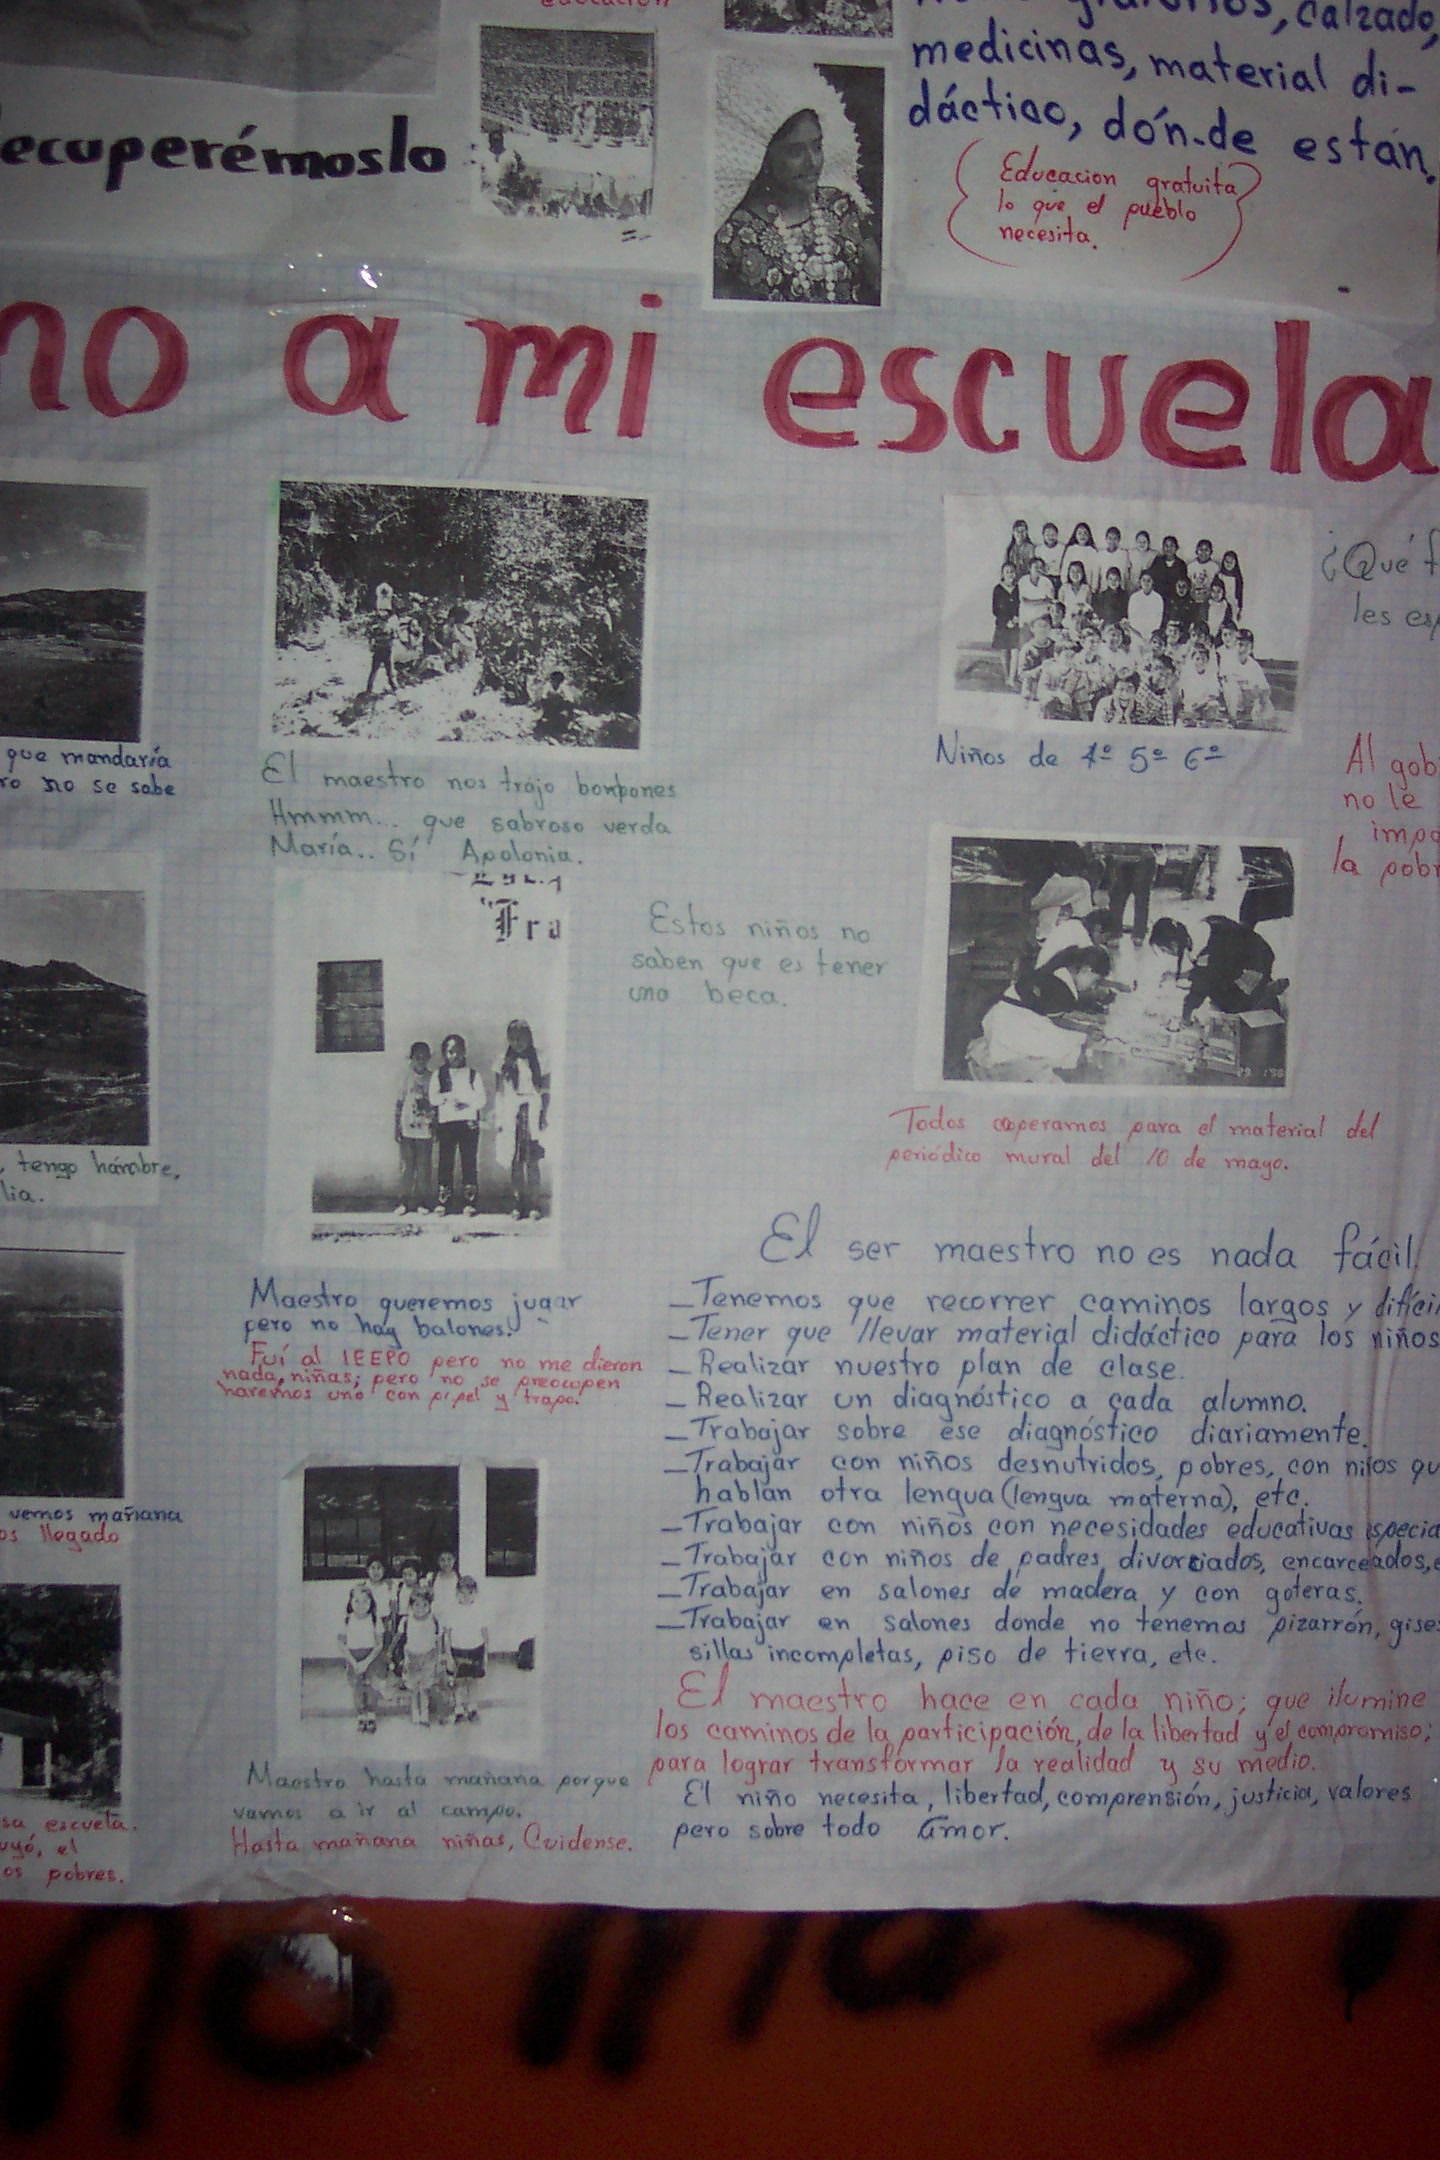 educación
calzado,
medicinas, material di-
dáctico, dón-de están.
ecuperémoslo
Educacion gratuita
lo que el pueblo
necesita.
no a mi escuela
¿Qué f
les esp
que mandaría
ro no se sabe
El maestro nos trajo bonbones
Hmmm... que sabroso verda
María.. Sí Apolonia.
Niños de 4º 5º 6º
Al gob
no le
impo
la pobr
"Fra
Estos niños no
saben que es tener
una beca.
29 1'98
, tengo hámbre,
lia.
Todos coperamos para el material del
periódico mural del 10 de mayo.
Maestro queremos jugar
pero no hay balones.
Fuí al IEEPO pero no me dieron
nada, niñas; pero no se preocupen
haremos uno con papel y trapo.
El ser maestro no es nada fácil.
_Tenemos que recorrer caminos largos y difíci
_Tener que llevar material didáctico para los niños
_Realizar nuestro plan de clase.
_Realizar un diagnóstico a cada alumno.
_Trabajar sobre ese diagnóstico diariamente.
_Trabajar con niños desnutridos, pobres, con niños qu
hablan otra lengua (lengua materna), etc.
_Trabajar con niños con necesidades educativas especia
_Trabajar con niños de padres divorciados, encarcelados, e
_Trabajar en salones de madera y con goteras.
_Trabajar en salones donde no tenemos pizarrón, gises
sillas incompletas, piso de tierra, etc.
El maestro hace en cada niño; que ilumine
los caminos de la participación, de la libertad y el compromiso;
para lograr transformar la realidad y su medio.
El niño necesita, libertad, comprensión, justicia, valores
pero sobre todo Amor.
vemos mañana
os llegado
Maestro hasta mañana porque
vamos a ir al campo.
Hasta mañana niñas, Cuidense.
sa escuela.
uyó, el
os pobres.
no mas